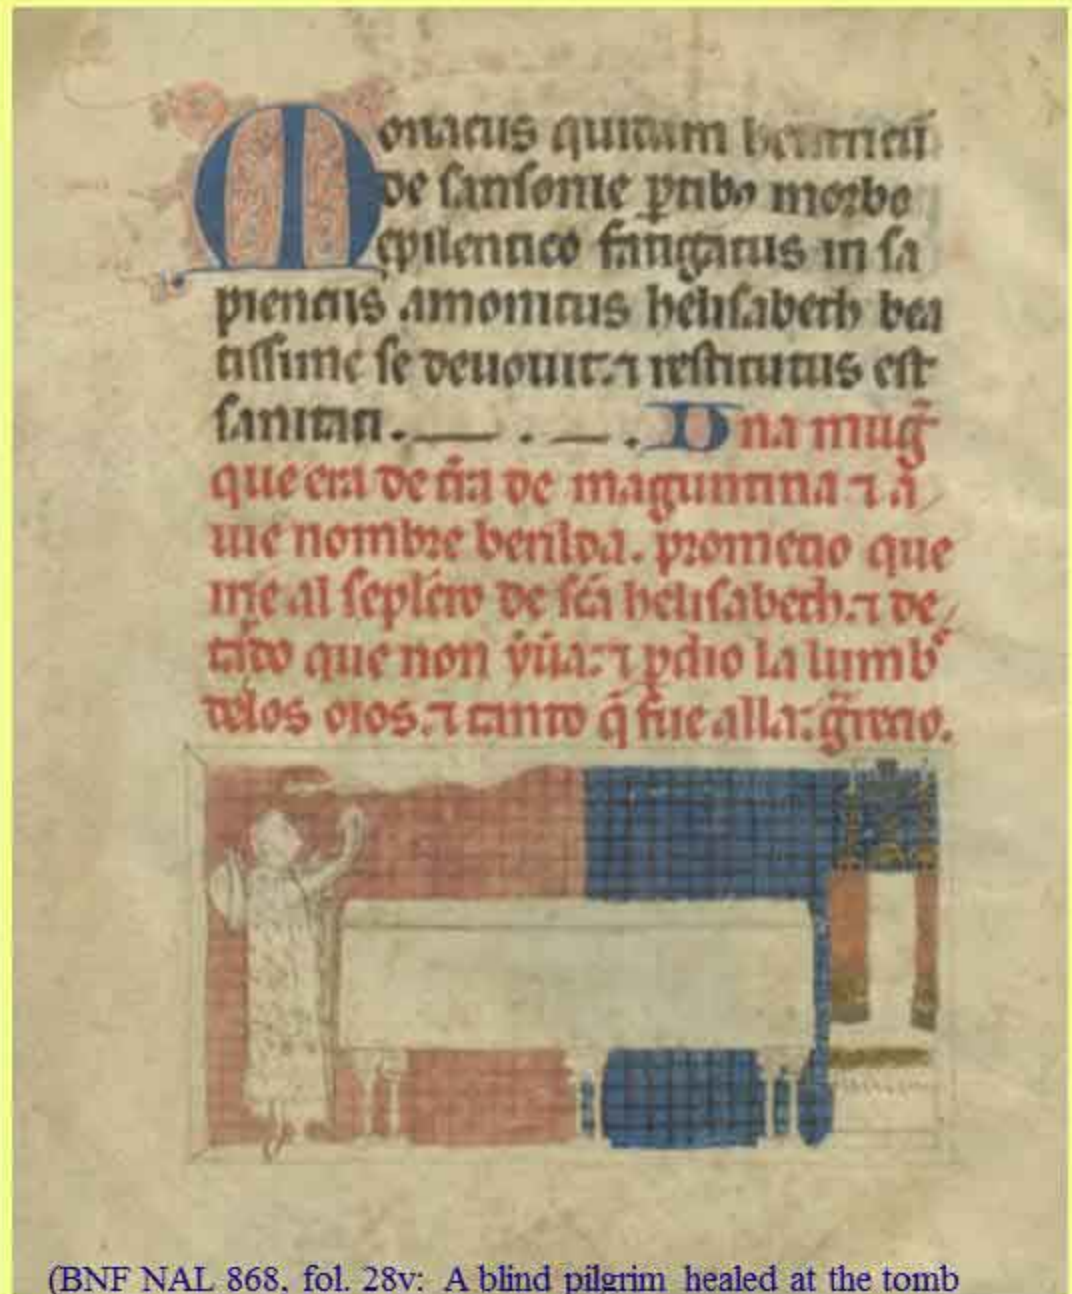 Monacus quidam
de sansonie p̱tibꝰ morbo
epilentico fatigatus in sa
piencijs amonitus helisabeth bea
tissime se deuouit ⁊ restitutus est
sanitati. Una mug̃
que era de tr̃a de maguntina ⁊ a
uie nombre berilda. prometio que
irie al seplc̃ro de sc̃a helisabeth. ⁊ de
tãdo que non yua: ⁊ ꝑdio la lumb
delos oios. ⁊ tanto q̃ fue alla:
(BNF NAL 868, fol. 28v: A blind pilgrim healed at the tomb